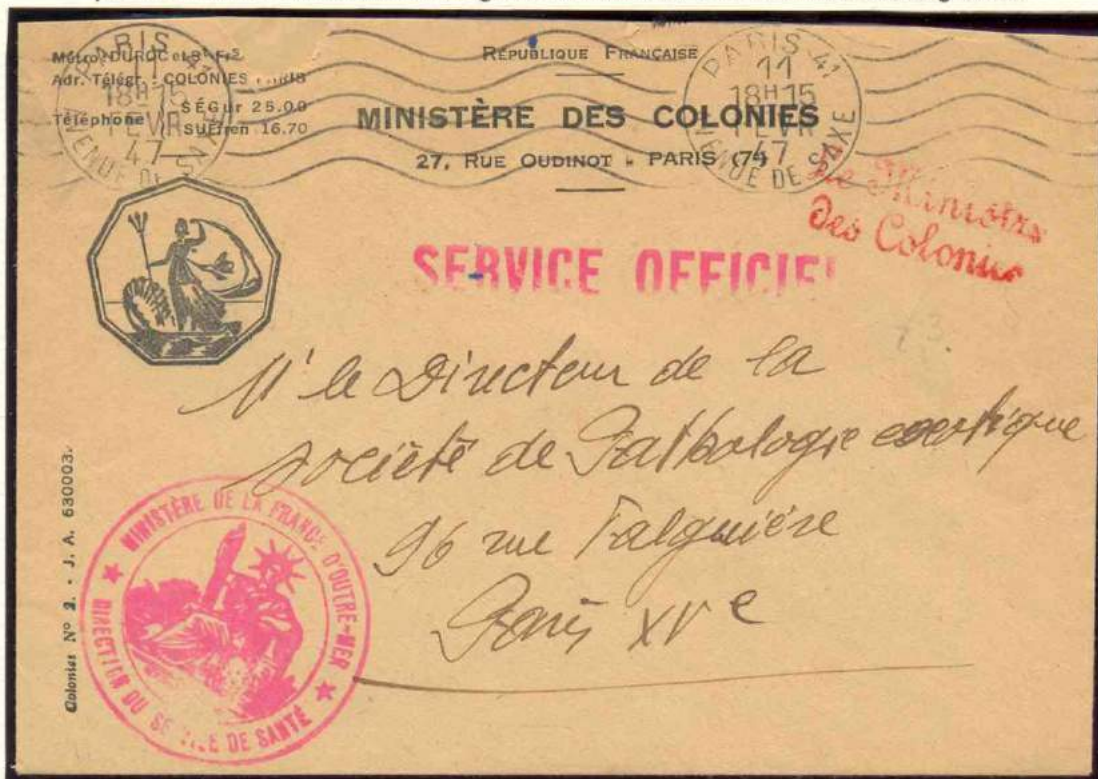 Métro: DUROC et St Frs
Adr. Télégr.: COLONIES PARIS
Téléphone SÉGUR 25.00
SUFFREN 16.70
RÉPUBLIQUE FRANÇAISE
MINISTÈRE DES COLONIES
27, RUE OUDINOT - PARIS (7e)
PARIS
18H15
FEVR
47
AVENUE DE SAXE
PARIS-41
11
18H15
FEVR
47
AVENUE DE SAXE
Le Ministre
des Colonies
SERVICE OFFICIEL
Mr le Directeur de la
Société de Pathologie exotique
96 rue Falguière
Paris XVe
Colonies N° 2. - J. A. 630003.
MINISTÈRE DE LA FRANCE D'OUTRE-MER
DIRECTION DU SERVICE DE SANTÉ